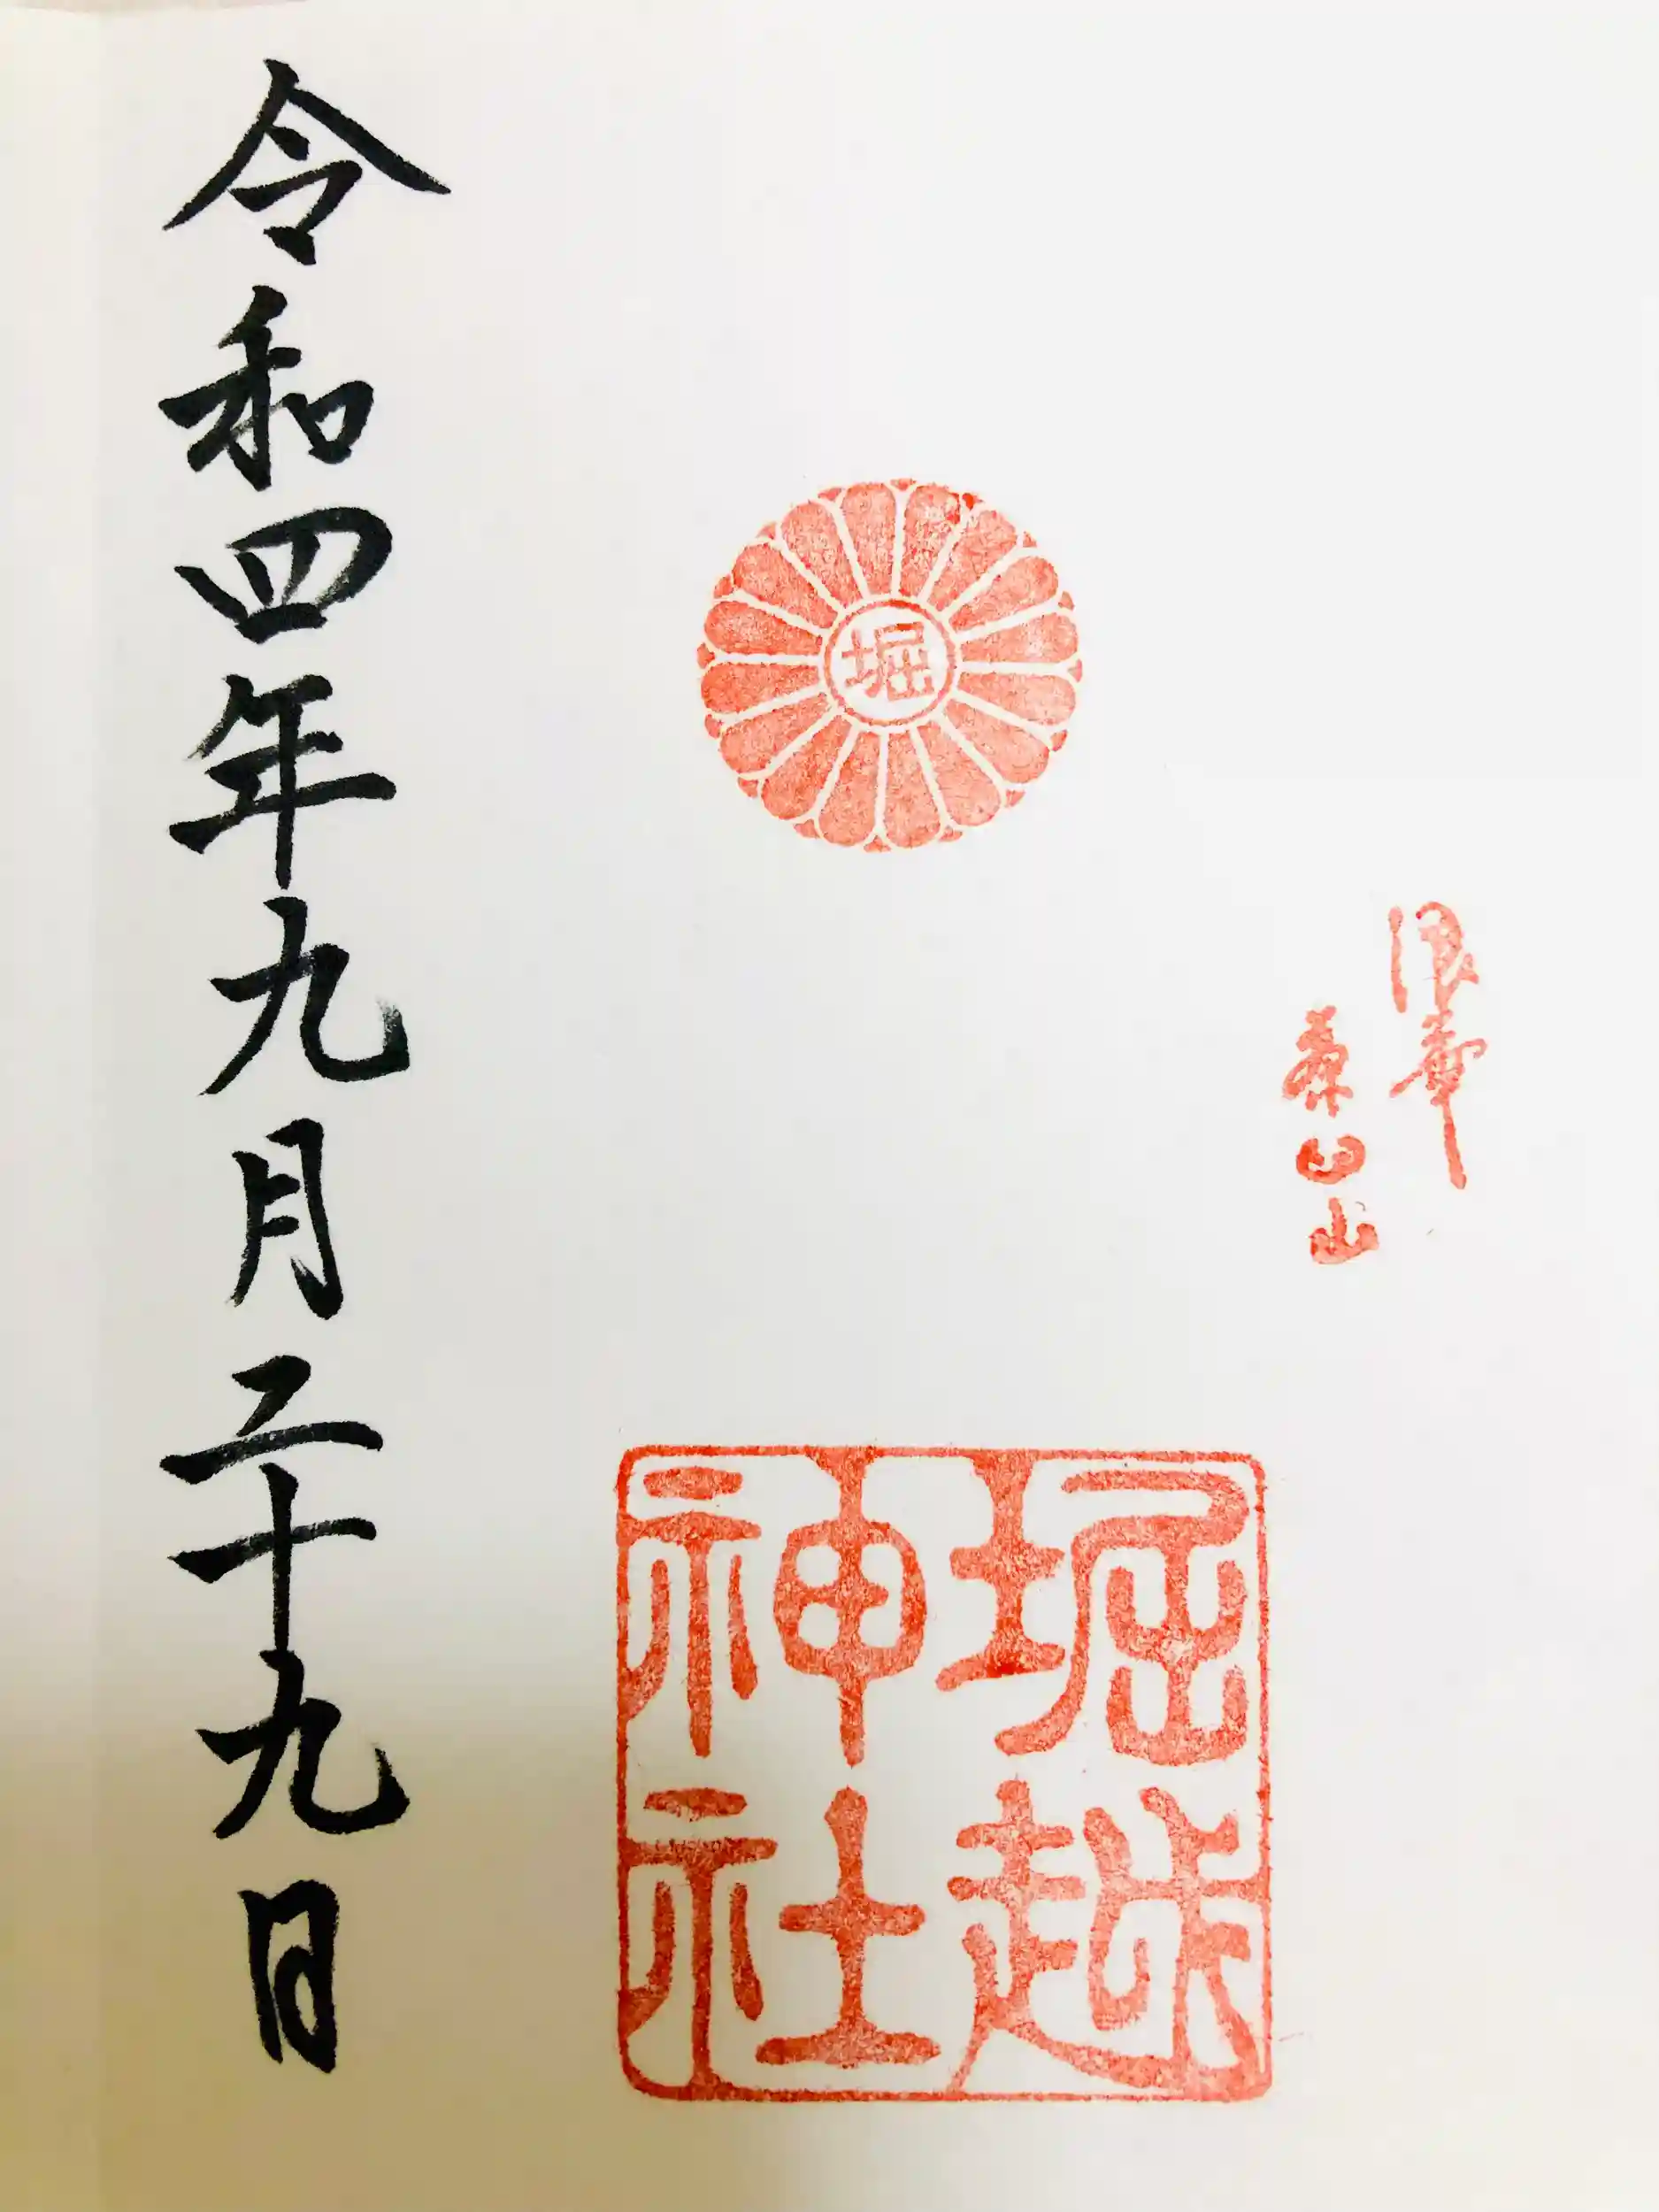 浪華
茶臼山
堀
堀越
神社
令和四年九月二十九日